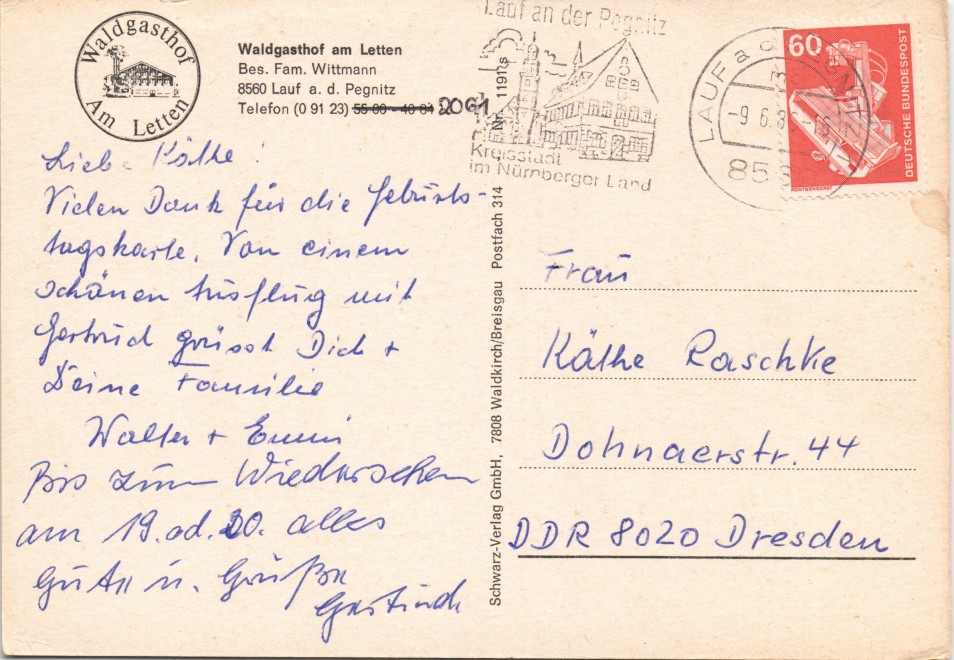 Waldgasthof
Am Letten
Waldgasthof am Letten
Bes. Fam. Wittmann
8560 Lauf a. d. Pegnitz
Telefon (0 91 23) 55 00 - 40 84 2061
Lauf an der Pegnitz
Kreisstadt
im Nürnberger Land
LAUF a d PEGNITZ
-9.6.8
85
60
DEUTSCHE BUNDESPOST
Liebe Käthe!
Vielen Dank für die Geburts-
tagskarte. Von einem
schönen Ausflug mit
Gertrud grüsst Dich +
Deine Familie
Walter +
Bis zum Wiedersehen
am 19. od. 20. alles
Gute u. Grüße
Gertrud
Schwarz-Verlag GmbH, 7808 Waldkirch/Breisgau Postfach 314 Nr. 1191 s
Frau
Käthe Raschke
Dohnaerstr. 44
DDR 8020 Dresden